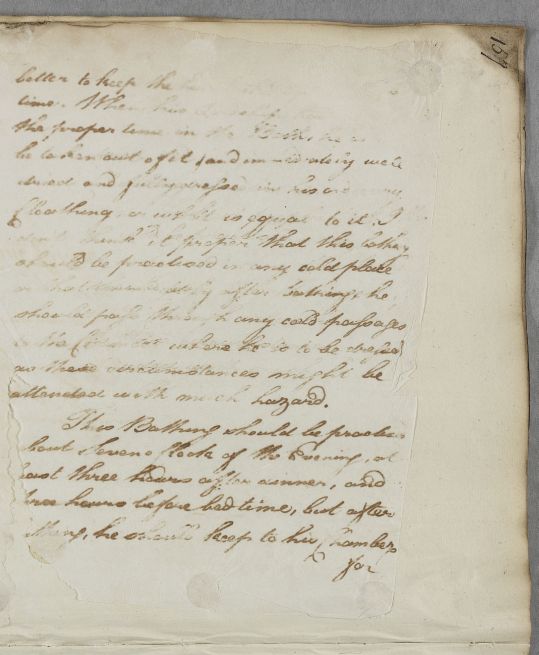 157
better to keep the
time. When he has
the proper time in the Bath, he is
be taken out of it, and immediately well
dried and fully dressed in his ordinary
Cloathing, or what is equal to it. I
dont think it proper that this bathing
should be practised in any cold place
or that immediately after bathing, he
should pass through any cold passages
to the Chamber where he is to be dressed
as these circumstances might be
attended with much hazard.
This Bathing should be practised
about seven o Clock of the Evening, at
least three hours after dinner, and
three hours before bed time, but after
bathing, he should keep to his Chamber
for